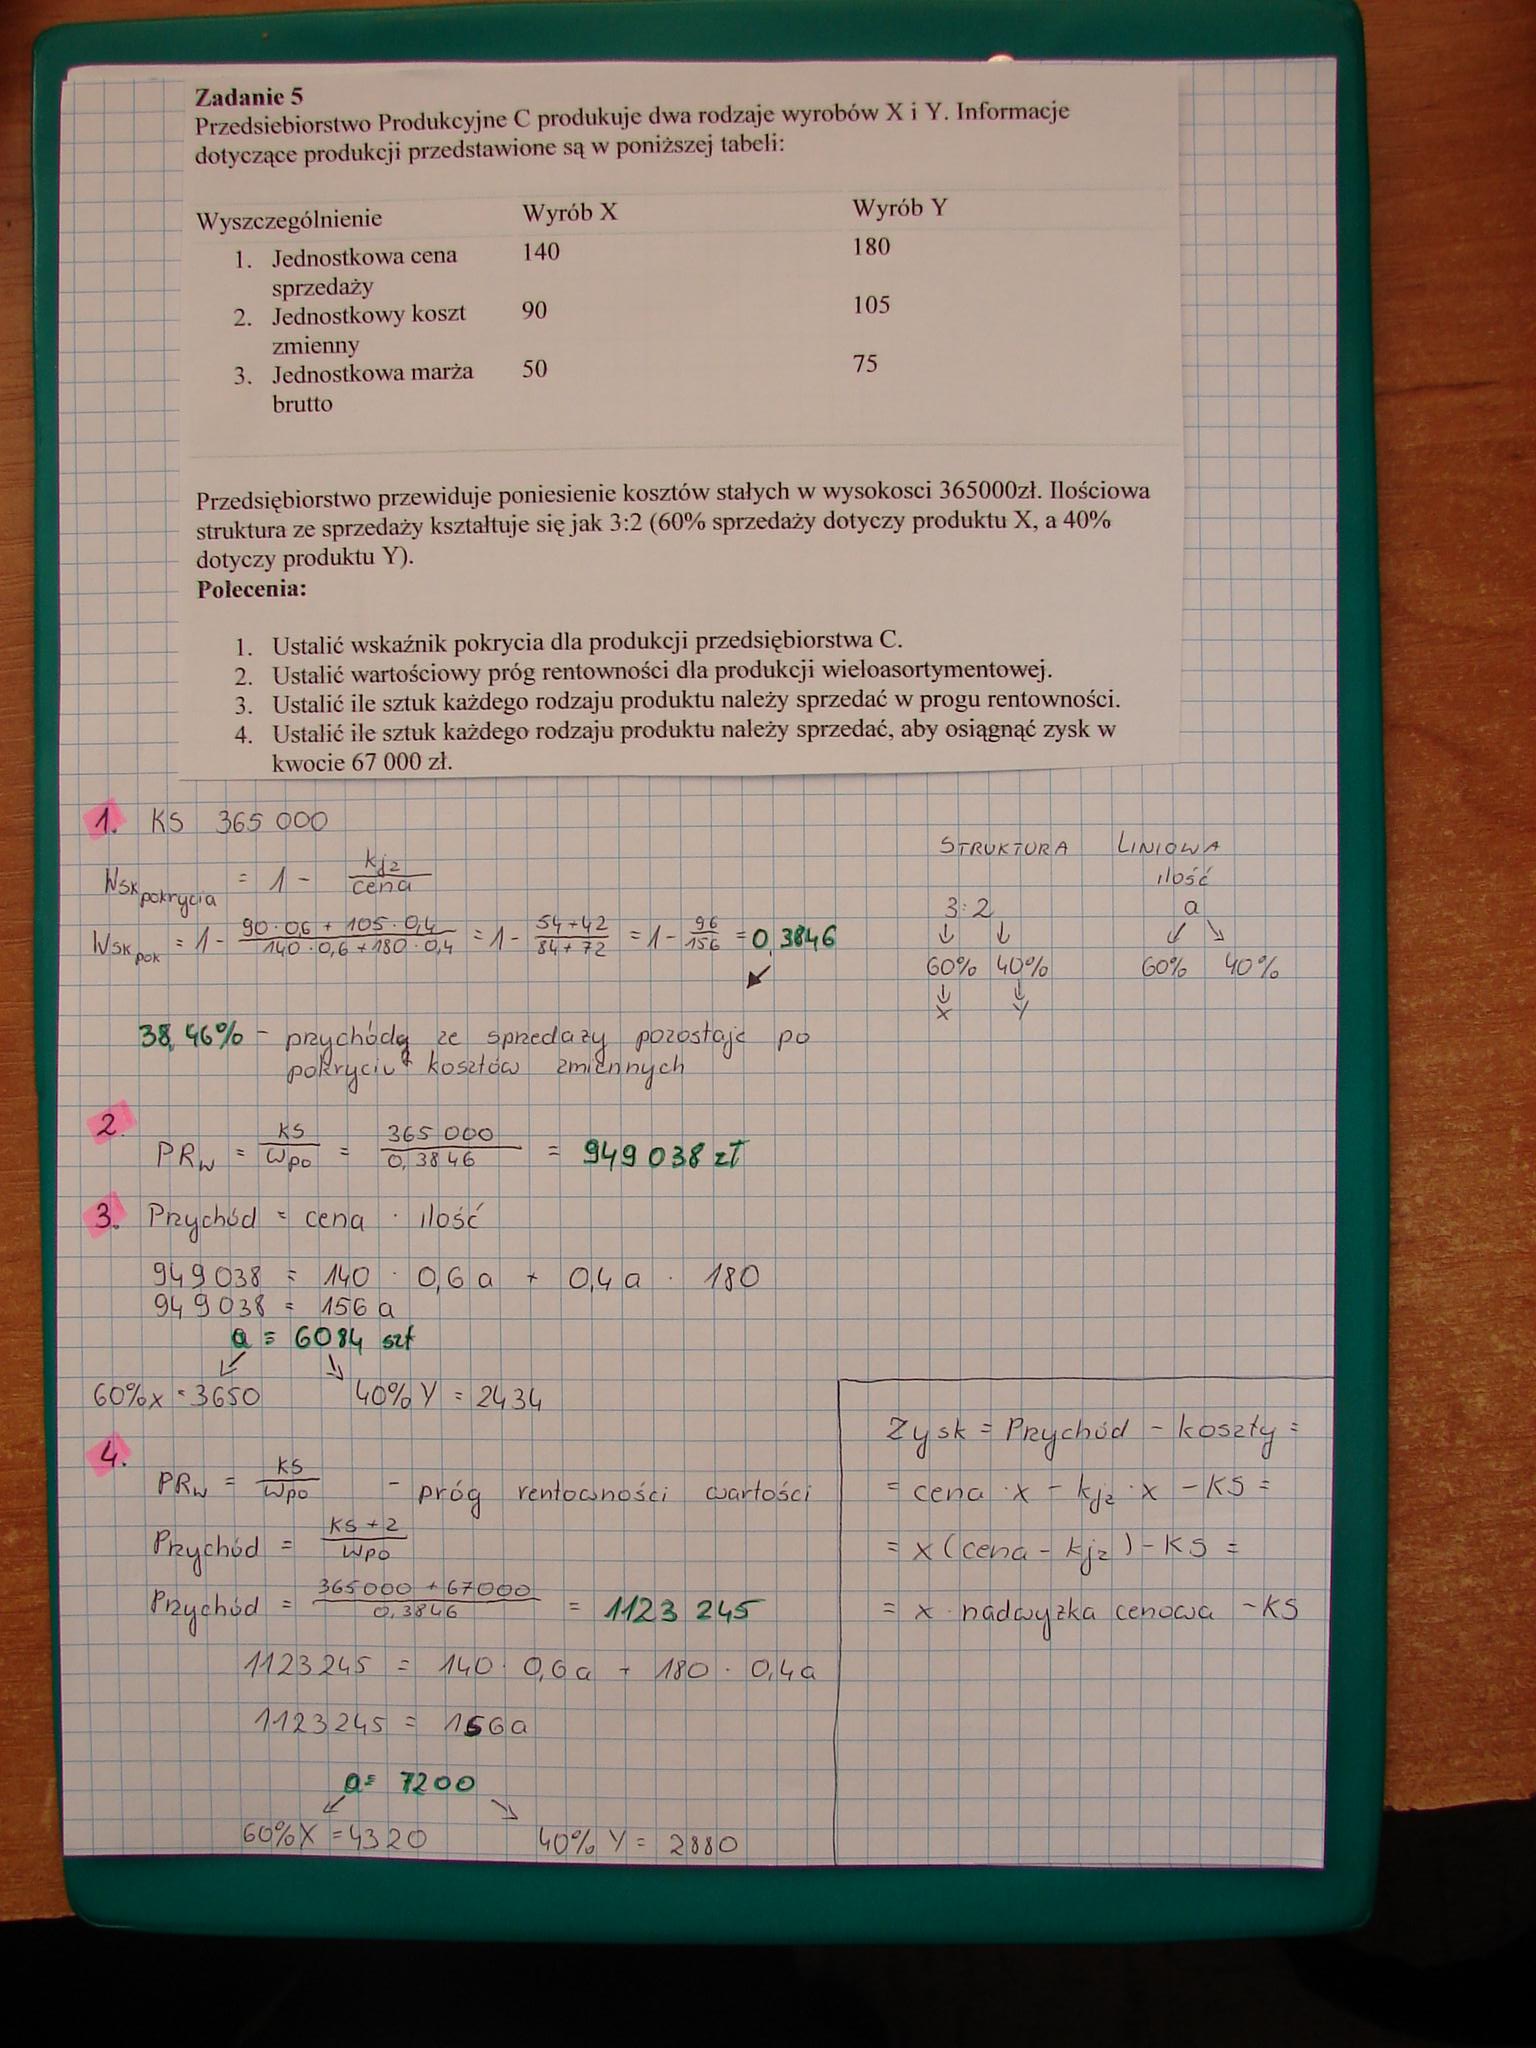 Zadanie 5
Przedsiebiorstwo Produkcyjne C produkuje dwa rodzaje wyrobów X i Y. Informacje
dotyczące produkcji przedstawione są w poniższej tabeli:
Wyszczególnienie Wyrób X Wyrób Y
1. Jednostkowa cena 140 180
sprzedaży
2. Jednostkowy koszt 90 105
zmienny
3. Jednostkowa marża 50 75
brutto
Przedsiębiorstwo przewiduje poniesienie kosztów stałych w wysokosci 365000zł. Ilościowa
struktura ze sprzedaży kształtuje się jak 3:2 (60% sprzedaży dotyczy produktu X, a 40%
dotyczy produktu Y).
Polecenia:
1. Ustalić wskaźnik pokrycia dla produkcji przedsiębiorstwa C.
2. Ustalić wartościowy próg rentowności dla produkcji wieloasortymentowej.
3. Ustalić ile sztuk każdego rodzaju produktu należy sprzedać w progu rentowności.
4. Ustalić ile sztuk każdego rodzaju produktu należy sprzedać, aby osiągnąć zysk w
kwocie 67 000 zł.
1. KS 365 000
Wsk pokrycia = 1 - kjz / cena
Wsk pok = 1 - 90 · 0,6 + 105 · 0,4 / 140 · 0,6 + 180 · 0,4 = 1 - 54+42 / 84+72 = 1 - 96 / 156 = 0,3846
38,46% - przychodą ze sprzedaży pozostaje po
pokryciu kosztów zmiennych
STRUKTURA LINIOWA
ilość
3:2 a
↓ ↓ ↙ ↘
60% 40% 60% 40%
↓ ↓
X Y
2. PRw = KS / Wpo = 365 000 / 0,3846 = 949 038 zł
3. Przychód = cena · ilość
949 038 = 140 · 0,6 a + 0,4 a · 180
949 038 = 156 a
a = 6084 szt
↙ ↘
60% x = 3650 40% Y = 2434
4. PRw = KS / Wpo - próg rentowności wartości
Przychód = KS + z / Wpo
Przychód = 365000 + 67000 / 0,3846 = 1123 245
1123245 = 140 · 0,6 a + 180 · 0,4 a
1123245 = 156 a
a = 7200
↙ ↘
60% X = 4320 40% Y = 2880
Zysk = Przychód - koszty =
= cena · x - kjz · x - KS =
= x (cena - kjz) - KS =
= x · nadwyżka cenowa - KS